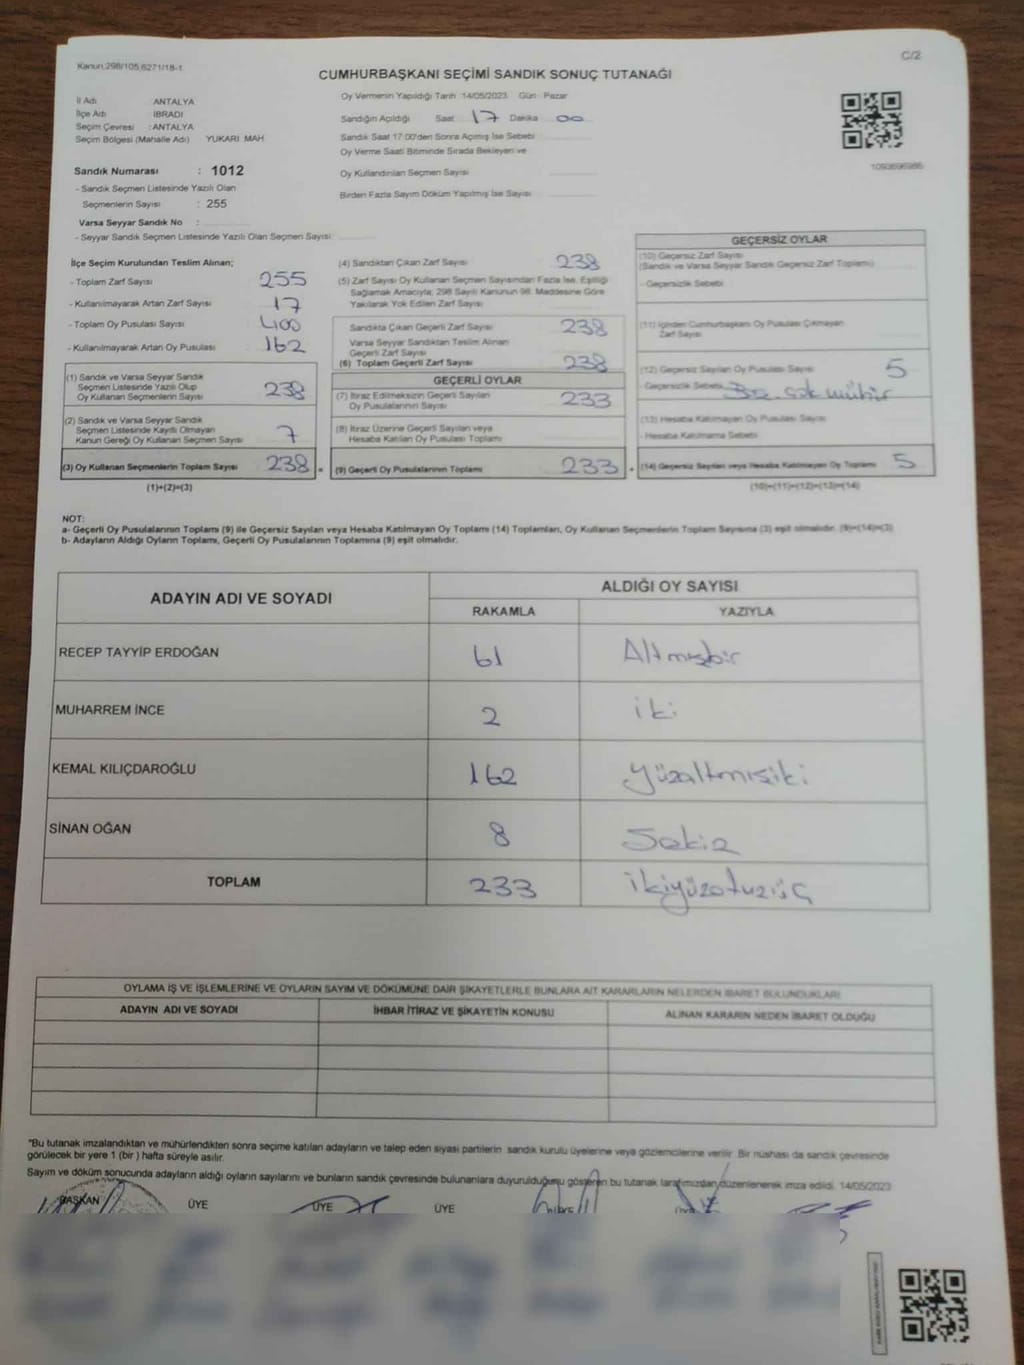 Kanun,298/105,6271/18-1
C/2
CUMHURBAŞKANI SEÇİMİ SANDIK SONUÇ TUTANAĞI
İl Adı ANTALYA
İlçe Adı İBRADI
Seçim Çevresi : ANTALYA
Seçim Bölgesi (Mahalle Adı) YUKARI MAH
Sandık Numarası : 1012
- Sandık Seçmen Listesinde Yazılı Olan
Seçmenlerin Sayısı : 255
Varsa Seyyar Sandık No :
- Seyyar Sandık Seçmen Listesinde Yazılı Olan Seçmen Sayısı:
Oy Vermenin Yapıldığı Tarih :14/05/2023 Gün : Pazar
Sandığın Açıldığı Saat 17 Dakika 00
Sandık Saat 17:00'den Sonra Açmış İse Sebebi
Oy Verme Saati Bitiminde Sırada Bekleyen ve
Oy Kullandırılan Seçmen Sayısı
Birden Fazla Sayım Döküm Yapılmış İse Sayısı
1093696986
İlçe Seçim Kurulundan Teslim Alınan;
- Toplam Zarf Sayısı 255
- Kullanılmayarak Artan Zarf Sayısı 17
- Toplam Oy Pusulası Sayısı 400
- Kullanılmayarak Artan Oy Pusulası 162
(1) Sandık ve Varsa Seyyar Sandık
Seçmen Listesinde Yazılı Olup
Oy Kullanan Seçmenlerin Sayısı 238
(2) Sandık ve Varsa Seyyar Sandık
Seçmen Listesinde Kayıtlı Olmayan
Kanun Gereği Oy Kullanan Seçmen Sayısı 7
(3) Oy Kullanan Seçmenlerin Toplam Sayısı 238 =
(1)+(2)=(3)
(4) Sandıktan Çıkan Zarf Sayısı 238
(5) Zarf Sayısı Oy Kullanan Seçmen Sayısından Fazla İse, Eşitliği
Sağlamak Amacıyla; 298 Sayılı Kanunun 98. Maddesine Göre
Yakılarak Yok Edilen Zarf Sayısı
Sandıkta Çıkan Geçerli Zarf Sayısı 238
Varsa Seyyar Sandıktan Teslim Alınan
Geçerli Zarf Sayısı
(6) Toplam Geçerli Zarf Sayısı 238
GEÇERLİ OYLAR
(7) İtiraz Edilmeksizin Geçerli Sayılan
Oy Pusulalarının Sayısı 233
(8) İtiraz Üzerine Geçerli Sayılan veya
Hesaba Katılan Oy Pusulası Toplamı
(9) Geçerli Oy Pusulalarının Toplamı 233 +
GEÇERSİZ OYLAR
(10) Geçersiz Zarf Sayısı
(Sandık ve Varsa Seyyar Sandık Geçersiz Zarf Toplamı)
- Geçersizlik Sebebi
(11) İçinden Cumhurbaşkanı Oy Pusulası Çıkmayan
Zarf Sayısı
(12) Geçersiz Sayılan Oy Pusulası Sayısı 5
- Geçersizlik Sebebi mühür
(13) Hesaba Katılmayan Oy Pusulası Sayısı
- Hesaba Katılmama Sebebi
(14) Geçersiz Sayılan veya Hesaba Katılmayan Oy Toplamı 5
(10)+(11)+(12)+(13)=(14)
NOT:
a- Geçerli Oy Pusulalarının Toplamı (9) ile Geçersiz Sayılan veya Hesaba Katılmayan Oy Toplamı (14) Toplamları, Oy Kullanan Seçmenlerin Toplam Sayısına (3) eşit olmalıdır. (9)+(14)=(3)
b- Adayların Aldığı Oyların Toplamı, Geçerli Oy Pusulalarının Toplamına (9) eşit olmalıdır.
ADAYIN ADI VE SOYADI ALDIĞI OY SAYISI
RAKAMLA YAZIYLA
RECEP TAYYİP ERDOĞAN 61 Altmışbir
MUHARREM İNCE 2 iki
KEMAL KILIÇDAROĞLU 162 yüzaltmışiki
SİNAN OĞAN 8 Sekiz
TOPLAM 233 ikiyüzotuzüç
OYLAMA İŞ VE İŞLEMLERİNE VE OYLARIN SAYIM VE DÖKÜMÜNE DAİR ŞİKAYETLERLE BUNLARA AİT KARARLARIN NELERDEN İBARET BULUNDUKLARI
ADAYIN ADI VE SOYADI İHBAR İTİRAZ VE ŞİKAYETİN KONUSU ALINAN KARARIN NEDEN İBARET OLDUĞU
*Bu tutanak imzalandıktan ve mühürlendikten sonra seçime katılan adayların ve talep eden siyasi partilerin sandık kurulu üyelerine veya gözlemcilerine verilir. Bir nüshası da sandık çevresinde
görülecek bir yere 1 (bir ) hafta süreyle asılır.
Sayım ve döküm sonucunda adayların aldığı oyların sayılarını ve bunların sandık çevresinde bulunanlara duyurulduğunu gösteren bu tutanak tarafımızdan düzenlenerek imza edildi. 14/05/2023
BAŞKAN ÜYE ÜYE ÜYE ÜYE ÜYE